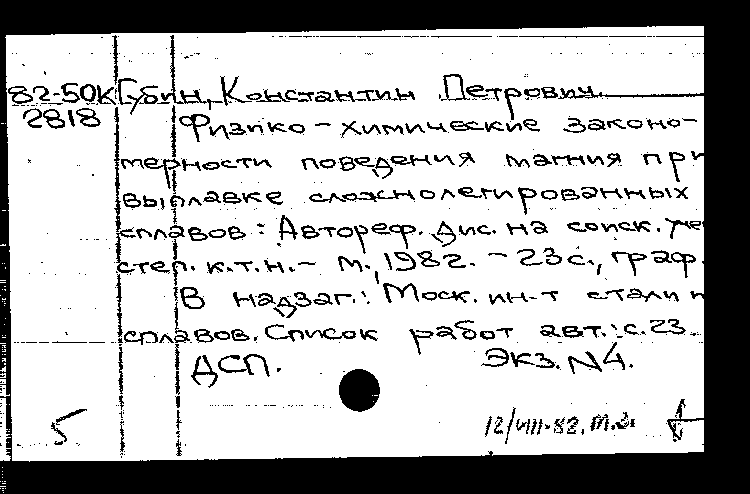 82-50К Губин, Константин Петрович.
2818 Физико-химические законо-
мерности поведения магния при
выплавке сложнолегированных
сплавов: Автореф. дис. на соиск. уче
степ. к.т.н. - М., 1982. - 23 с., граф.
В надзаг.: Моск. ин-т стали и
сплавов. Список работ авт.: с. 23.
ДСП. Экз. N4.
5 12/VIII-82. М.З.